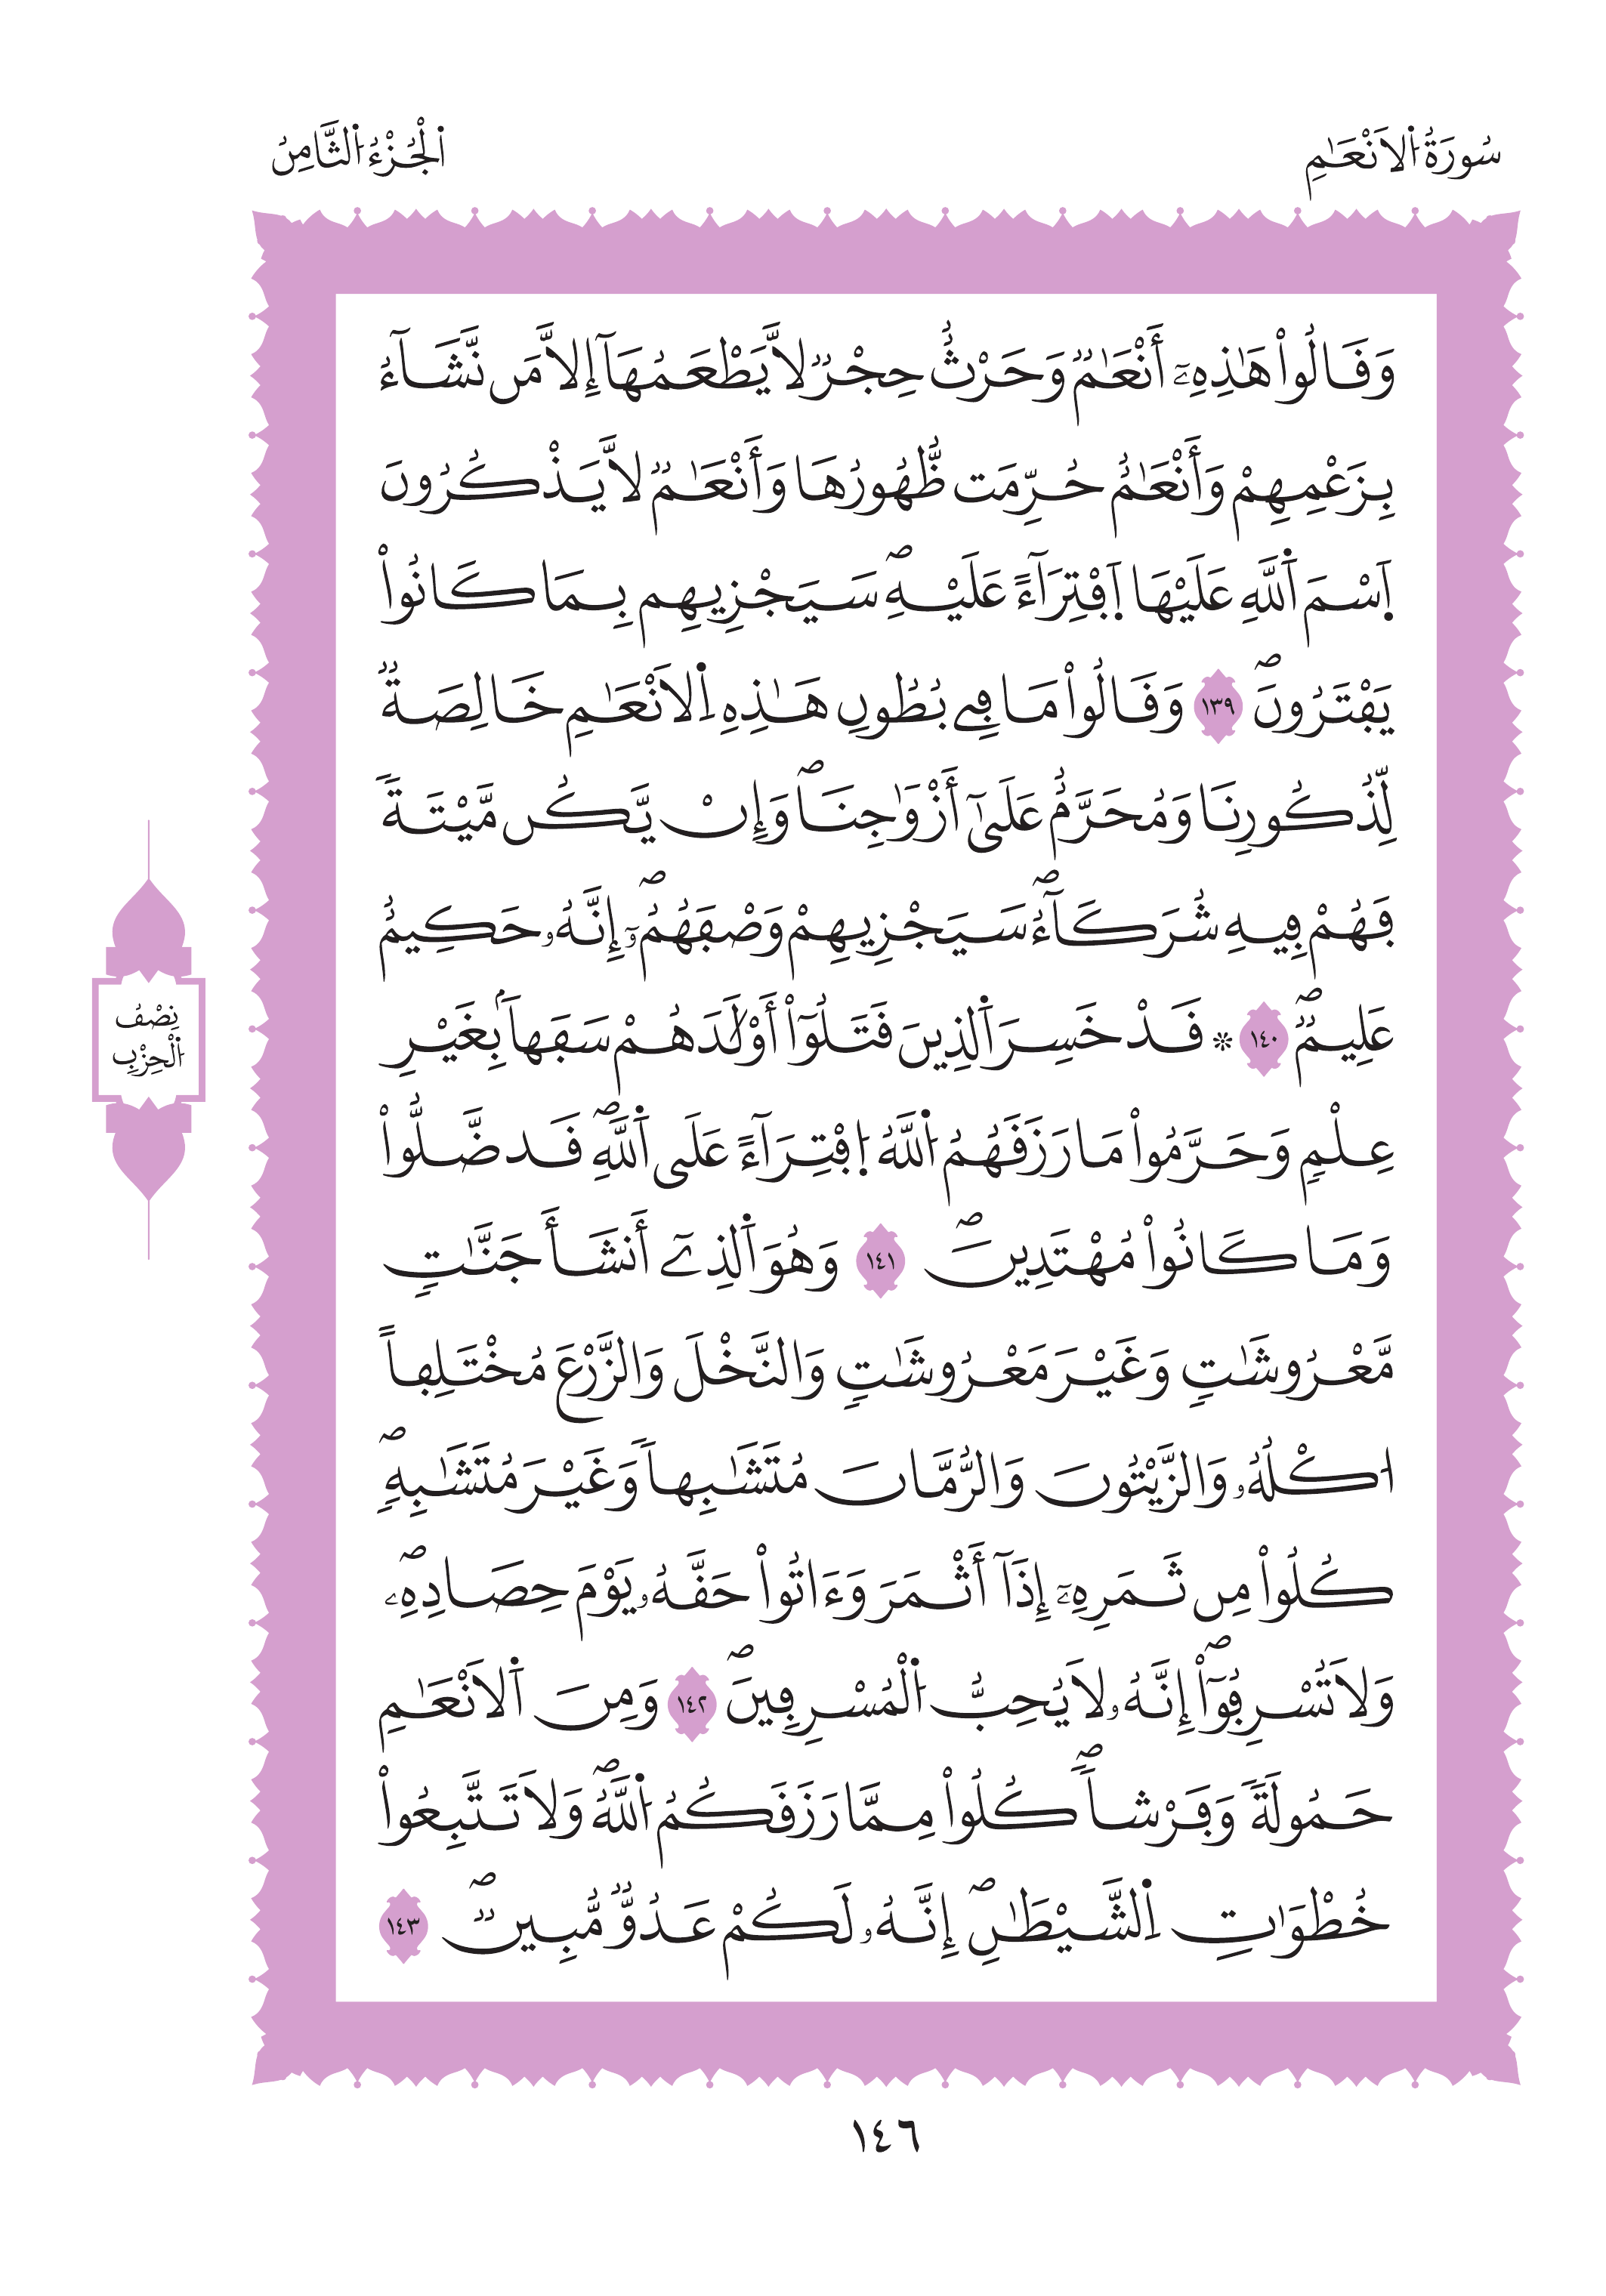 سُورَةُ اُ۬لَانْعَٰمِ
اَ۬لْجُزْءُ اُ۬لثَّامِنُ
وَقَالُواْ هَٰذِهِۦٓ أَنْعَٰمٞ وَحَرْثٌ حِجْرٞ لَّا يَطْعَمُهَآ إِلَّا مَن نَّشَآءُ
بِزَعْمِهِمْ وَأَنْعَٰمٌ حُرِّمَت ظُّهُورُهَا وَأَنْعَٰمٞ لَّا يَذْكُرُونَ
اَ۪سْمَ اَ۬للَّهِ عَلَيْهَا اَ۪فْتِرَآءً عَلَيْهِۖ سَيَجْزِيهِم بِمَا كَانُواْ
يَفْتَرُونَۖ ١٣٩ وَقَالُواْ مَا فِے بُطُونِ هَٰذِهِ اِ۬لَانْعَٰمِ خَالِصَةٞ
لِّذُكُورِنَا وَمُحَرَّمٌ عَلَىٰٓ أَزْوَٰجِنَاۖ وَإِنْ يَّكُن مَّيْتَةٗ
فَهُمْ فِيهِ شُرَكَآءُۖ سَيَجْزِيهِمْ وَصْفَهُمُۥٓۖ إِنَّهُۥ حَكِيمٌ
عَلِيمٞۖ ١٤٠ ۞ قَدْ خَسِرَ اَ۬لذِينَ قَتَلُوٓاْ أَوْلَٰدَهُمْ سَفَهاَۢ بِغَيْرِ
عِلْمٖ وَحَرَّمُواْ مَا رَزَقَهُمُ اُ۬للَّهُ اُ۪فْتِرَآءً عَلَى اَ۬للَّهِۖ قَد ضَّلُّواْ
وَمَا كَانُواْ مُهْتَدِينَۖ ١٤١ وَهُوَ اَ۬لذِےٓ أَنشَأَ جَنَّٰتٖ
مَّعْرُوشَٰتٖ وَغَيْرَ مَعْرُوشَٰتٖ وَالنَّخْلَ وَالزَّرْعَ مُخْتَلِفاً
اكْلُهُۥ وَالزَّيْتُونَ وَالرُّمَّانَ مُتَشَٰبِهاٗ وَغَيْرَ مُتَشَٰبِهٖۖ
كُلُواْ مِن ثَمَرِهِۦٓ إِذَآ أَثْمَرَ وَءَاتُواْ حَقَّهُۥ يَوْمَ حِصَادِهِۦۖ
وَلَا تُسْرِفُوٓاْۖ إِنَّهُۥ لَا يُحِبُّ اُ۬لْمُسْرِفِينَۖ ١٤٢ وَمِنَ اَ۬لَانْعَٰمِ
حَمُولَةٗ وَفَرْشاٗۖ كُلُواْ مِمَّا رَزَقَكُمُ اُ۬للَّهُۖ وَلَا تَتَّبِعُواْ
خُطْوَٰتِ اِ۬لشَّيْطَٰنِۖ إِنَّهُۥ لَكُمْ عَدُوّٞ مُّبِينٞۖ ١٤٣
نِصْفُ
اُ۬لْحِزْبِ
١٤٦